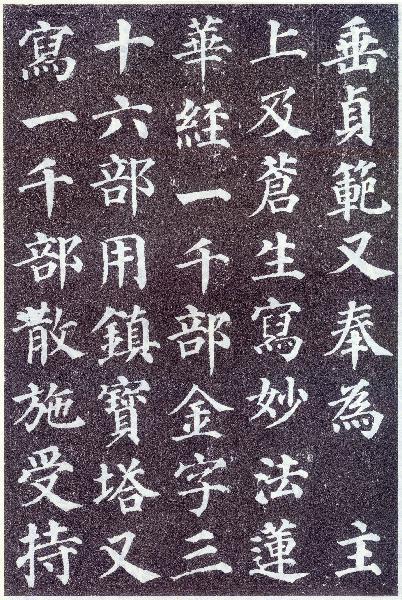 垂貞範又奉為 主
上及蒼生寫妙法蓮
華經一千部金字三
十六部用鎮寶塔又
寫一千部散施受持